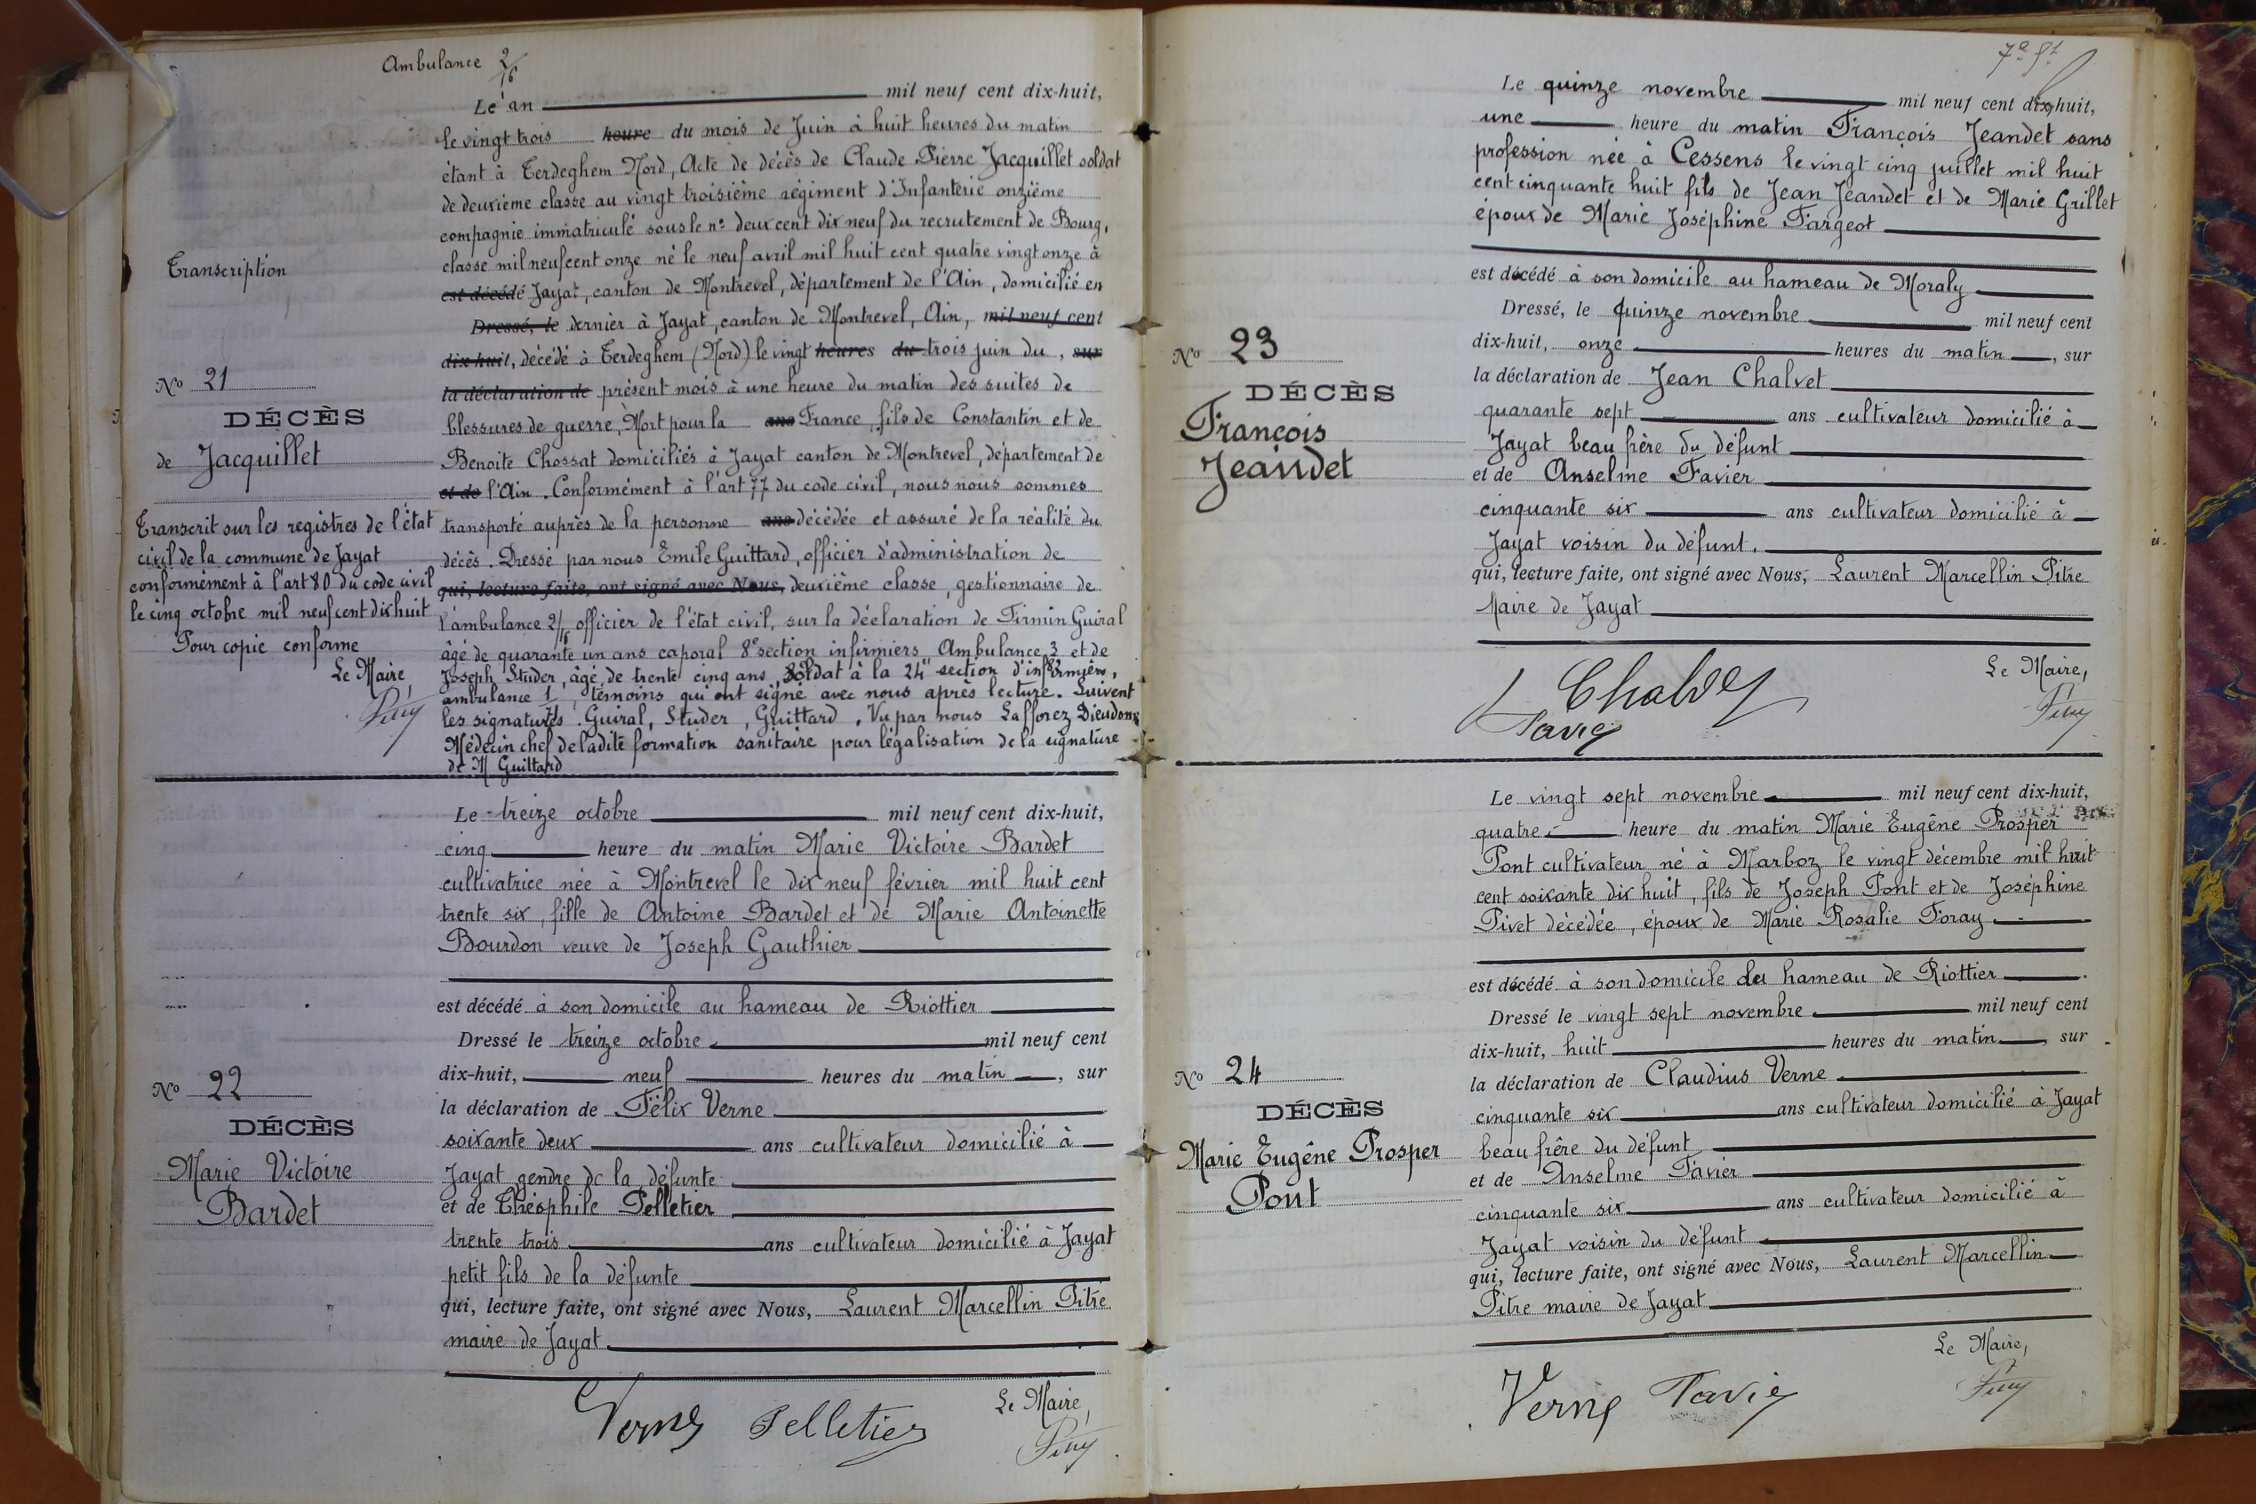 Ambulance 2/16
Le an mil neuf cent dix-huit,
le vingt trois heure du mois de Juin à huit heures du matin
étant à Terdeghem Nord, Acte de décès de Claude Pierre Jacquillet soldat
de deuxième classe au vingt troisième régiment d'Infanterie onzième
compagnie immatriculé sous le n° deux cent dix neuf du recrutement de Bourg,
classe mil neuf cent onze né le neuf avril mil huit cent quatre vingt onze à
est décédé Jayat, canton de Montrevel, département de l'Ain, domicilié en
Dressé, le dernier à Jayat, canton de Montrevel, Ain, mil neuf cent
dix-huit, décédé à Terdeghem (Nord) le vingt heures du trois juin du, sur
la déclaration de présent mois à une heure du matin des suites de
blessures de guerre, Mort pour la ans France, fils de Constantin et de
Benoite Chossat domiciliés à Jayat canton de Montrevel, département de
et de l'Ain. Conformément à l'art 77 du code civil, nous nous sommes
transporté auprès de la personne ans décédée et assuré de la réalité du
décès. Dressé par nous Emile Guittard, officier d'administration de
qui, lecture faite, ont signé avec Nous, deuxième classe, gestionnaire de
l'ambulance 2/16 officier de l'état civil, sur la déclaration de Firmin Guiral
âgé de quarante un ans caporal 8e section infirmiers Ambulance 3 et de
Joseph Studer, âgé de trente cinq ans, soldat à la 24e section d'infirmiers,
ambulance 1, témoins qui ont signé avec nous après lecture. Suivent
les signatures. Guiral, Studer, Guittard. Vu par nous Lafforez Dieudonné
Médecin chef de ladite formation sanitaire pour légalisation de la signature
de M Guittard
Transcription
No 21
DÉCÈS
de Jacquillet
Transcrit sur les registres de l'état
civil de la commune de Jayat
conformément à l'art 80 du code civil
le cinq octobre mil neuf cent dix huit
Pour copie conforme
Le Maire,
Le treize octobre mil neuf cent dix-huit,
cinq heure du matin Marie Victoire Bardet
cultivatrice née à Montrevel le dix neuf février mil huit cent
trente six, fille de Antoine Bardet et de Marie Antoinette
Bourdon veuve de Joseph Gauthier
est décédé à son domicile au hameau de Riottier
Dressé le treize octobre mil neuf cent
dix-huit, neuf heures du matin, sur
la déclaration de Félix Verne
soixante deux ans cultivateur domicilié à
Jayat gendre de la défunte
et de Théophile Pelletier
trente trois ans cultivateur domicilié à Jayat
petit fils de la défunte
qui, lecture faite, ont signé avec Nous, Laurent Marcellin Pitre
maire de Jayat
No 22
DÉCÈS
Marie Victoire
Bardet
Verne Pelletier
Le Maire,
Le quinze novembre mil neuf cent dix-huit,
une heure du matin François Jeandet sans
profession née à Cessens le vingt cinq juillet mil huit
cent cinquante huit fils de Jean Jeandet et de Marie Grillet
époux de Marie Joséphine Fargeot
est décédé à son domicile au hameau de Moraly
Dressé, le quinze novembre mil neuf cent
dix-huit, onze heures du matin, sur
la déclaration de Jean Chalvet
quarante sept ans cultivateur domicilié à
Jayat beau frère du défunt
et de Anselme Favier
cinquante six ans cultivateur domicilié à
Jayat voisin du défunt.
qui, lecture faite, ont signé avec Nous, Laurent Marcellin Pitre
Maire de Jayat
No 23
DÉCÈS
François
Jeandet
Chalvet
Favier
Le Maire,
Le vingt sept novembre mil neuf cent dix-huit,
quatre heure du matin Marie Eugêne Prosper
Pont cultivateur né à Marboz le vingt décembre mil huit
cent soixante dix huit, fils de Joseph Pont et de Joséphine
Pivet décédée, époux de Marie Rosalie Foray
est décédé à son domicile du hameau de Riottier
Dressé le vingt sept novembre mil neuf cent
dix-huit, huit heures du matin, sur
la déclaration de Claudius Verne
cinquante six ans cultivateur domicilié à Jayat
beau frère du défunt
et de Anselme Favier
cinquante six ans cultivateur domicilié à
Jayat voisin du défunt
qui, lecture faite, ont signé avec Nous, Laurent Marcellin
Pitre maire de Jayat
No 24
DÉCÈS
Marie Eugêne Prosper
Pont
Le Maire,
Verne Favier